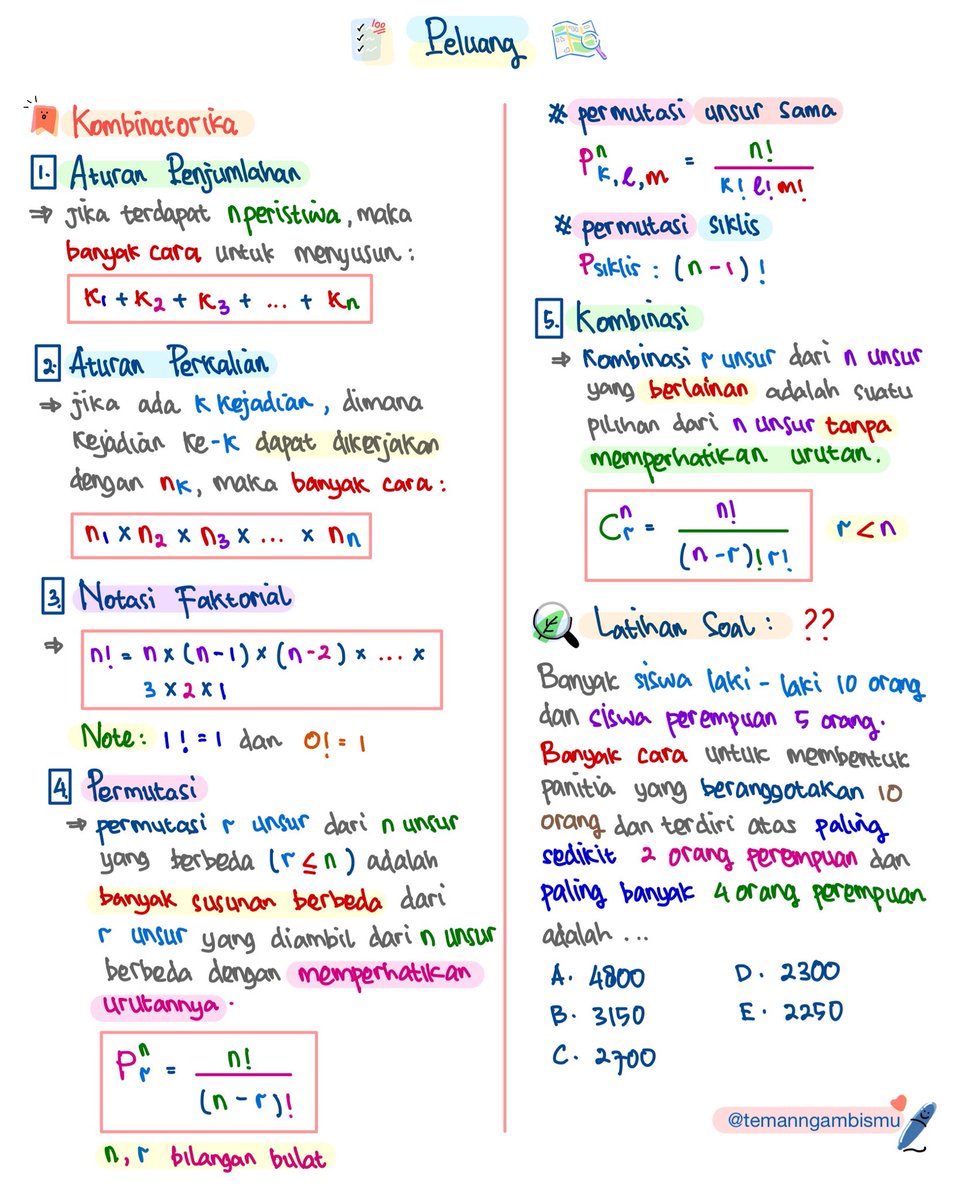 Peluang
Kombinatorika
1. Aturan Penjumlahan
⇒ jika terdapat n peristiwa, maka
banyak cara untuk menyusun :
K₁ + K₂ + K₃ + ... + Kn
2. Aturan Perkalian
⇒ jika ada k kejadian, dimana
kejadian ke-k dapat dikerjakan
dengan nₖ, maka banyak cara :
n₁ x n₂ x n₃ x ... x nn
3. Notasi Faktorial
⇒ n! = n x (n-1) x (n-2) x ... x
3 x 2 x 1
Note : 1! = 1 dan 0! = 1
4. Permutasi
⇒ permutasi r unsur dari n unsur
yang berbeda (r ≤ n) adalah
banyak susunan berbeda dari
r unsur yang diambil dari n unsur
berbeda dengan memperhatikan
urutannya.
P^n_r = n! / (n-r)!
n, r bilangan bulat
# permutasi unsur sama
P^n_k,l,m = n! / k! l! m!
# permutasi siklis
Psiklis : (n-1)!
5. Kombinasi
⇒ Kombinasi r unsur dari n unsur
yang berlainan adalah suatu
pilihan dari n unsur tanpa
memperhatikan urutan.
C^n_r = n! / (n-r)! r! r < n
Latihan Soal : ??
Banyak siswa laki-laki 10 orang
dan siswa perempuan 5 orang.
Banyak cara untuk membentuk
panitia yang beranggotakan 10
orang dan terdiri atas paling
sedikit 2 orang perempuan dan
paling banyak 4 orang perempuan
adalah ...
A. 4800 D. 2300
B. 3150 E. 2250
C. 2700
@temanngambismu